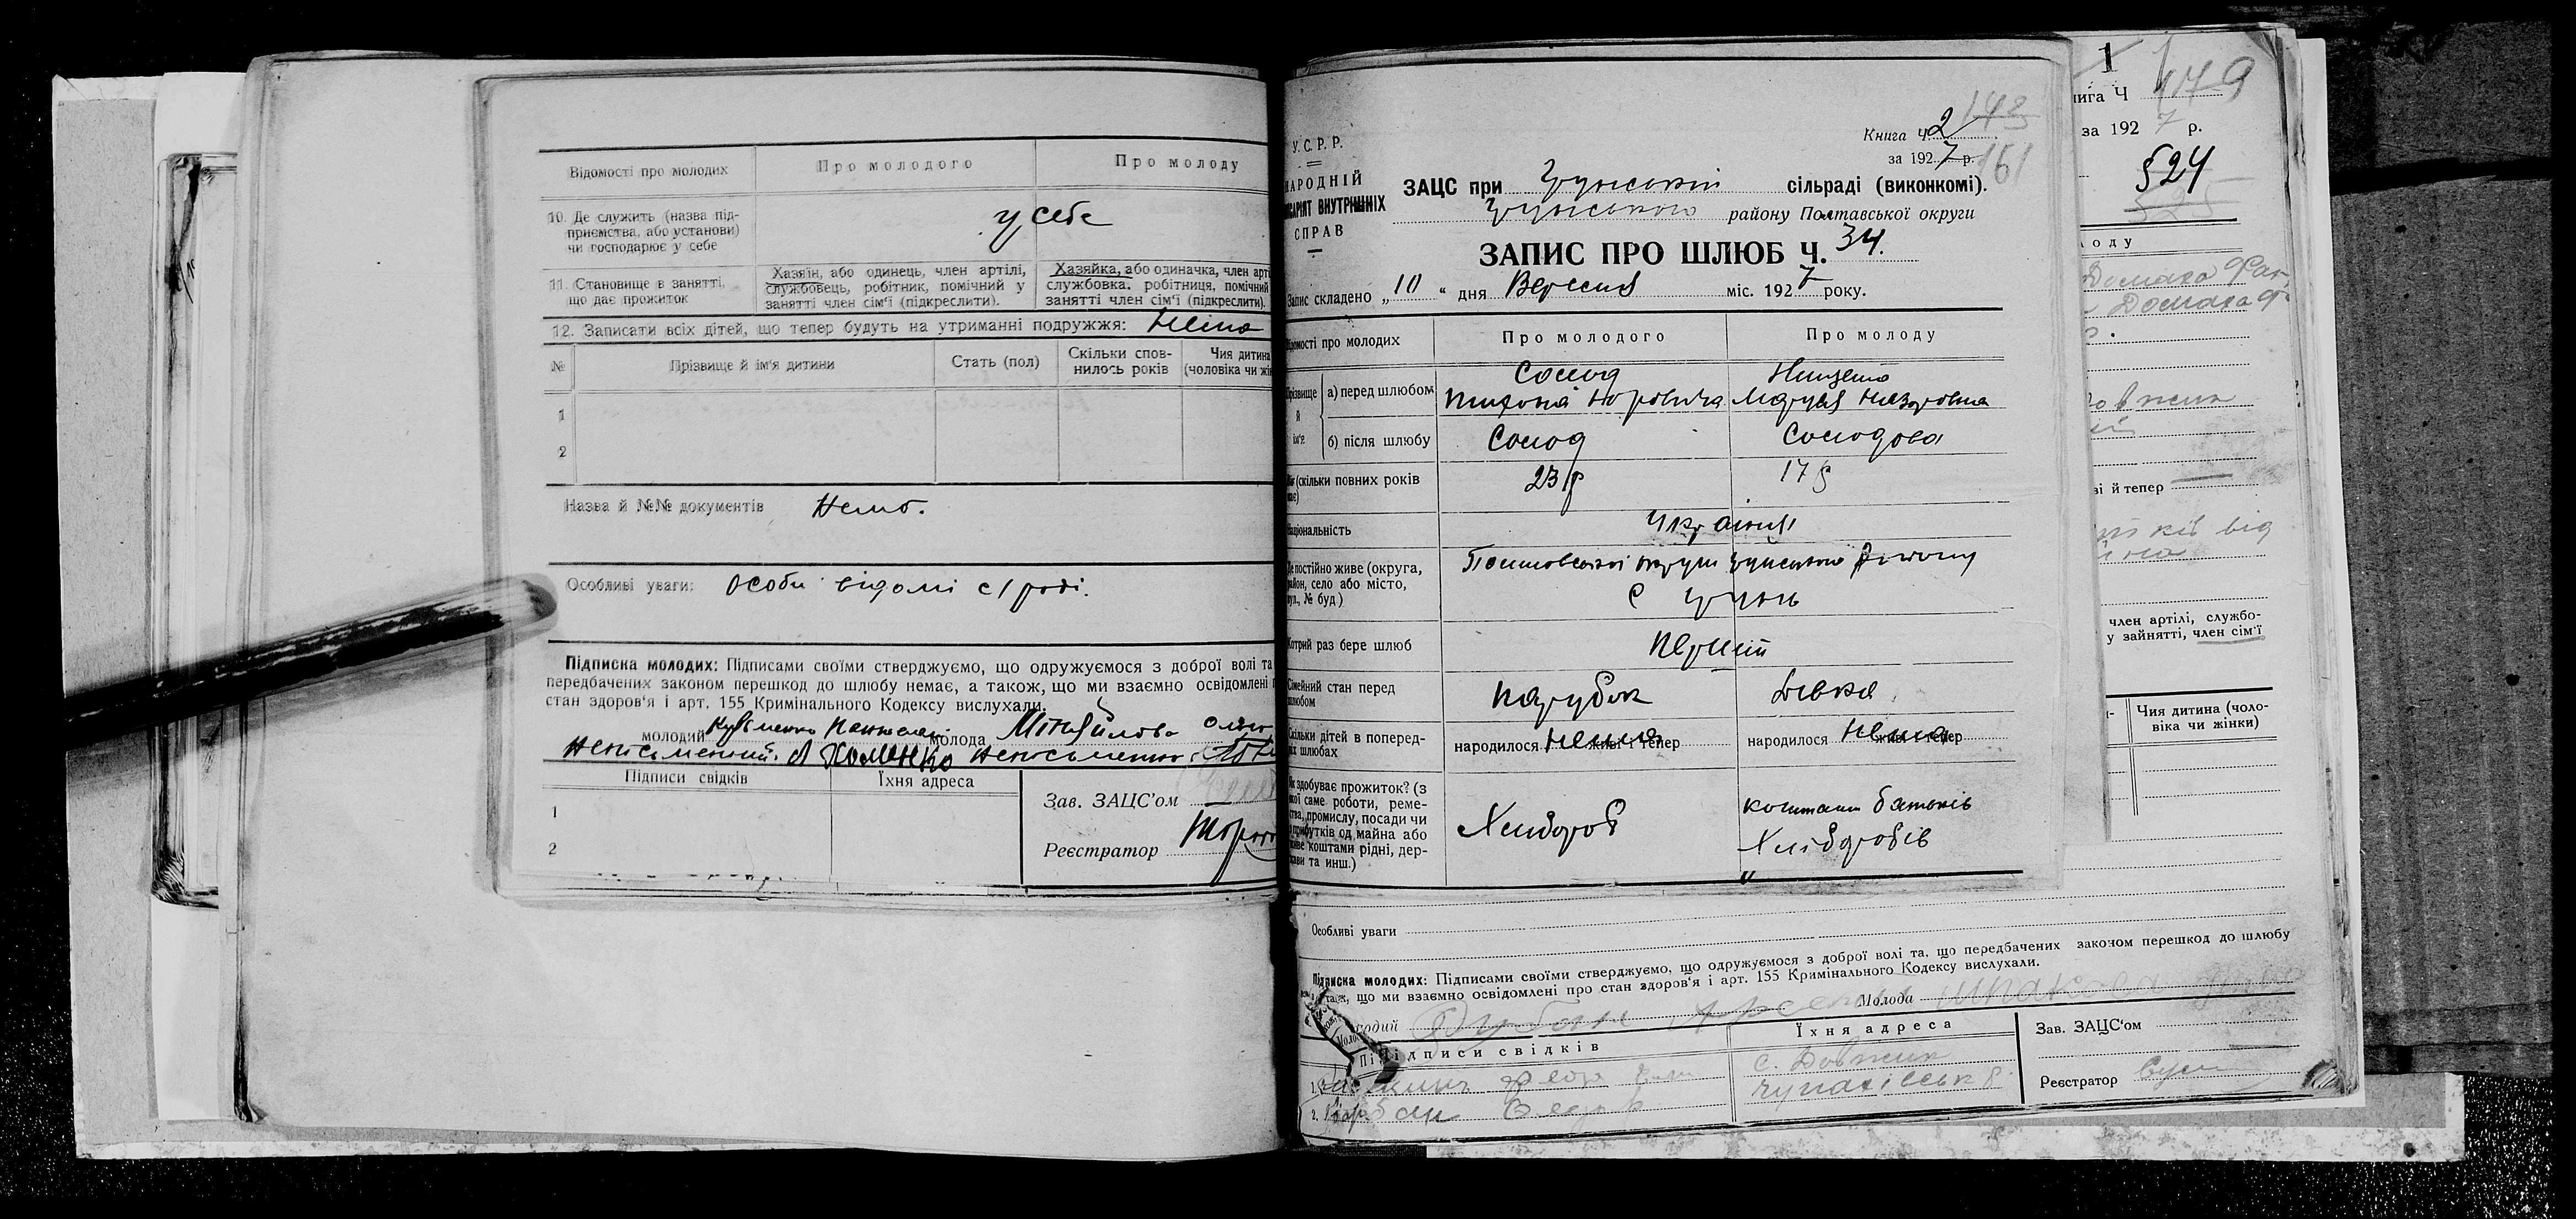 Відомості про молодих
Про молодого
Про молоду
10. Де служить (назва під-
приємства, або установи)
чи господарює у себе
у себе
11. Становище в занятті,
що дає прожиток
Хазяїн, або одинець, член артілі,
службовець, робітник, помічний у
занятті член сім'ї (підкреслити).
Хазяйка, або одиначка, член арті
службовка. робітниця, помічний
занятті член сім'ї (підкреслити).
12. Записати всіх дітей, що тепер будуть на утриманні подружжя: Нема
№
Прізвище й ім'я дитини
Стать (пол)
Скільки спов-
нилось років
Чия дитина
(чоловіка чи жін
1
2
Назва й №№ документів Немає.
Особливі уваги: Особи відомі с/раді.
Підписка молодих: Підписами своїми стверджуємо, що одружуємося з доброї волі та
передбачених законом перешкод до шлюбу немає, а також, що ми взаємно освідомлені п
стан здоров'я і арт. 155 Кримінального Кодексу вислухали.
молодий
молода
Неписьменний. Неписьменна
Підписи свідків
Їхня адреса
1
2
Зав. ЗАЦС'ом
Реєстратор
У. С. Р. Р.
НАРОДНІЙ
ВНУТРІШНІХ
СПРАВ
148
Книга Ч. 2
за 1927 р. 161
ЗАЦС при Грунській сільраді (виконкомі).
Грунського району Полтавської округи
ЗАПИС ПРО ШЛЮБ Ч. 34.
Запис складено „10" дня Вересня міс. 1927 року.
про молодих
Про молодого
Про молоду
й
ім'я
а) перед шлюбом
Солод
Нищета
б) після шлюбу
Солод
Солодова
(скільки повних років
23 р
17 р
Національність
Українці
Де постійно живе (округа,
район, село або місто,
вул., № буд.)
Полтавської округи Грунського району
с Грунь
Котрий раз бере шлюб
Перший
Сімейний стан перед
шлюбом
Парубок
Дівка
Скільки дітей в поперед-
них шлюбах
народилося Нема живі і тепер
народилося Нема живі і тепер
Як здобуває прожиток? (з
якої саме роботи, реме-
ства, промислу, посади чи
прибутків од майна або
живе коштами рідні, дер-
жави та инш.)
Хлібороб
коштами батьків
Хліборобів
1
179
нига Ч
за 1927 р.
§24
525
лоду
Домаха
Домаха
Довжик
ві й тепер
тків від
член артілі, службо-
у зайнятті, член сім'ї
Чия дитина (чоло-
віка чи жінки)
Особливі уваги
Підписка молодих: Підписами своїми стверджуємо, що одружуємося з доброї волі та, що передбачених законом перешкод до шлюбу
що ми взаємно освідомлені про стан здоров'я і арт. 155 Кримінального Кодексу вислухали.
Молода
Підписи свідків
Їхня адреса
Зав. ЗАЦС'ом
Реєстратор
с. Довжик
1.
2.